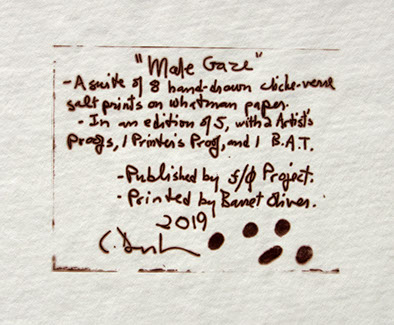 "Male Gaze"
- A suite of 8 hand-drawn cliche-verre
salt prints on whatman paper.
- In an edition of 5, with 2 Artist's
Proofs, 1 Printer's Proof, and 1 B.A.T.
- Published by f/ø Project.
- Printed by Barret Oliver.
2019